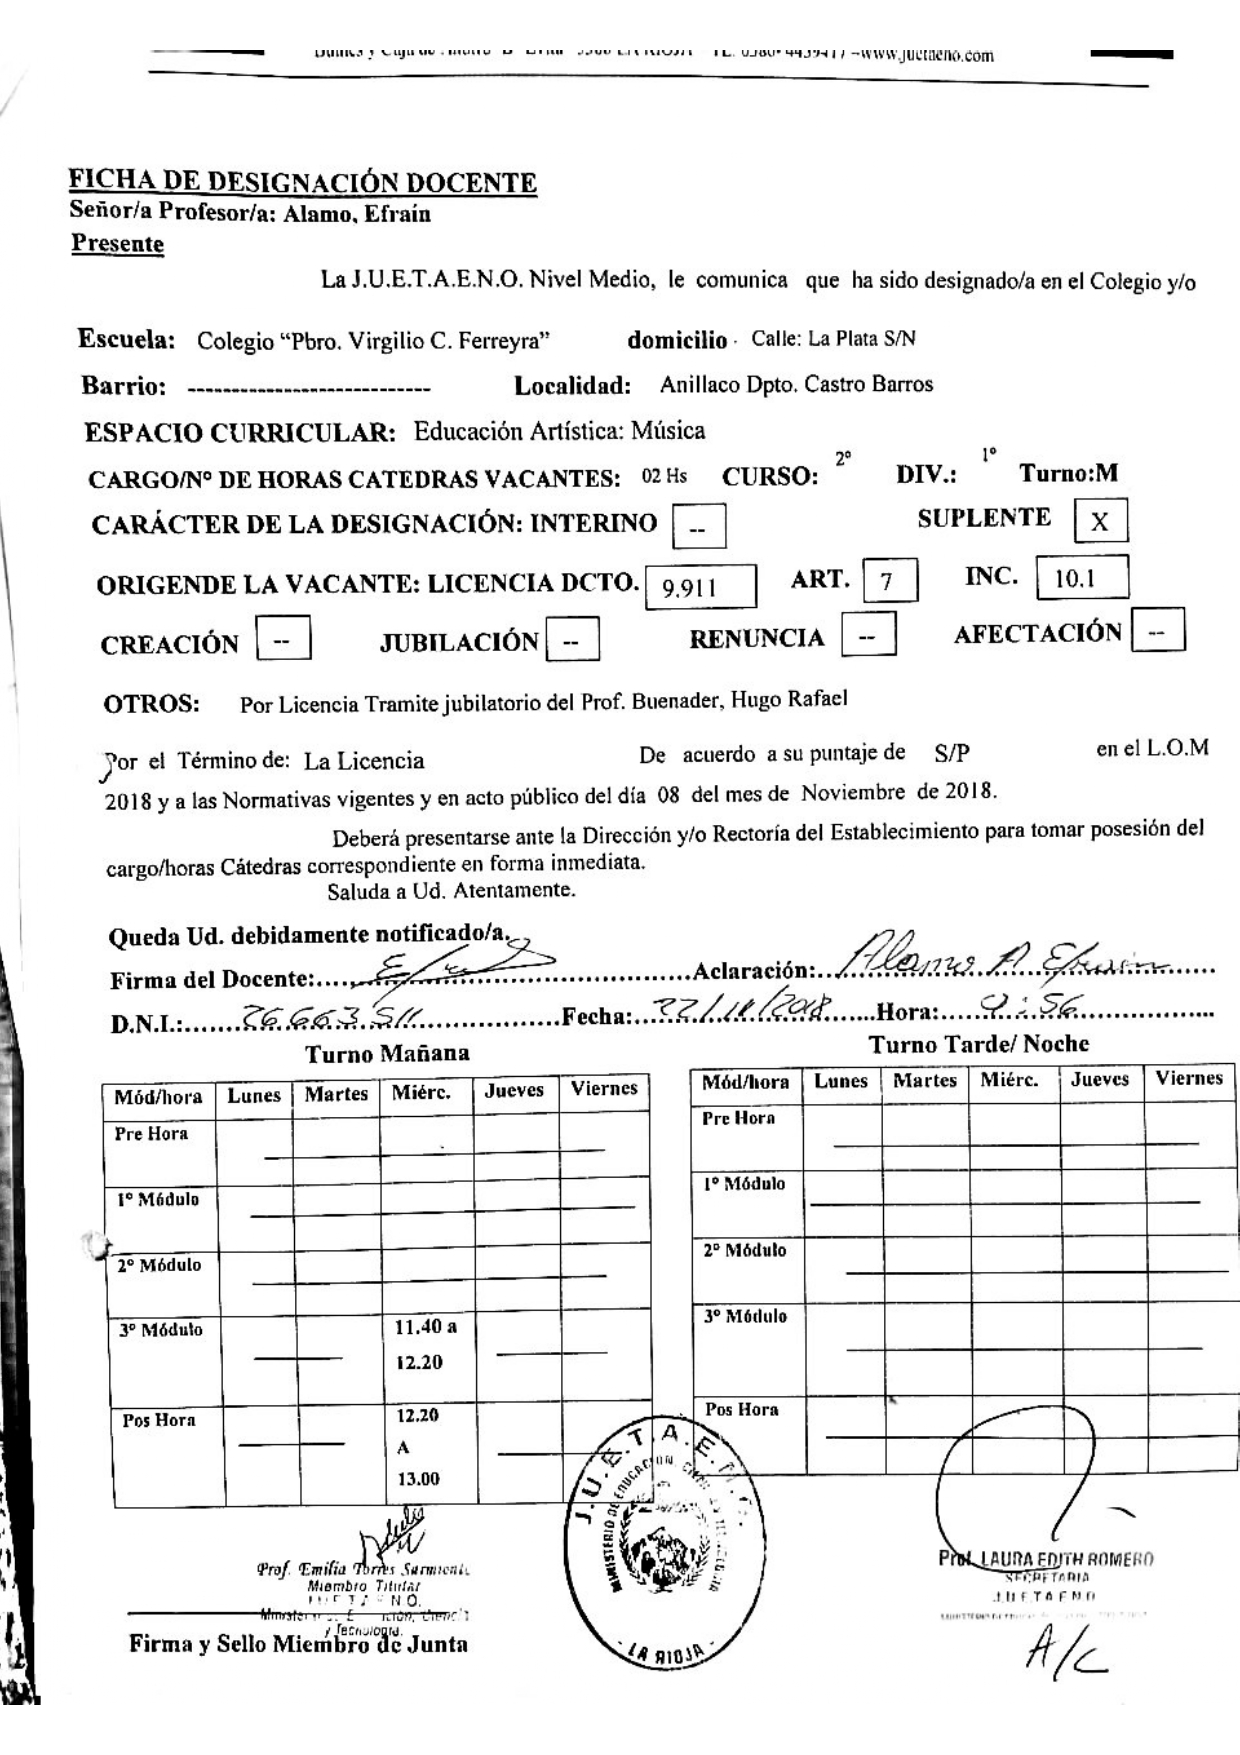 FICHA DE DESIGNACIÓN DOCENTE
Señor/a Profesor/a: Alamo, Efraín
Presente
La J.U.E.T.A.E.N.O. Nivel Medio, le comunica que ha sido designado/a en el Colegio y/o
Escuela: Colegio “Pbro. Virgilio C. Ferreyra” domicilio Calle: La Plata S/N
Barrio: ---------------------------- Localidad: Anillaco Dpto. Castro Barros
ESPACIO CURRICULAR: Educación Artística: Música
CARGO/Nº DE HORAS CATEDRAS VACANTES: 02 Hs CURSO: 2º DIV.: 1º Turno:M
CARÁCTER DE LA DESIGNACIÓN: INTERINO -- SUPLENTE X
ORIGENDE LA VACANTE: LICENCIA DCTO. 9.911 ART. 7 INC. 10.1
CREACIÓN -- JUBILACIÓN -- RENUNCIA -- AFECTACIÓN --
OTROS: Por Licencia Tramite jubilatorio del Prof. Buenader, Hugo Rafael
Por el Término de: La Licencia De acuerdo a su puntaje de S/P en el L.O.M
2018 y a las Normativas vigentes y en acto público del día 08 del mes de Noviembre de 2018.
Deberá presentarse ante la Dirección y/o Rectoría del Establecimiento para tomar posesión del
cargo/horas Cátedras correspondiente en forma inmediata.
Saluda a Ud. Atentamente.
Queda Ud. debidamente notificado/a.
Firma del Docente: Aclaración: Alamo A. Efraín
D.N.I.: 26.663.511 Fecha: 22/11/2018 Hora: 9:56
Turno Mañana
Mód/hora Lunes Martes Miérc. Jueves Viernes
Pre Hora
1º Módulo
2º Módulo
3º Módulo 11.40 a
12.20
Pos Hora 12.20
A
13.00
Turno Tarde/ Noche
Mód/hora Lunes Martes Miérc. Jueves Viernes
Pre Hora
1º Módulo
2º Módulo
3º Módulo
Pos Hora
Prof. Emilia Torres Sarmiento
Miembro Titular
Firma y Sello Miembro de Junta
J.U.E.T.A.E.N.O.
MINISTERIO DE EDUCACION
- LA RIOJA -
Prof. LAURA EDITH ROMERO
SECRETARIA
J.U.E.T.A.E.N.O
A/C